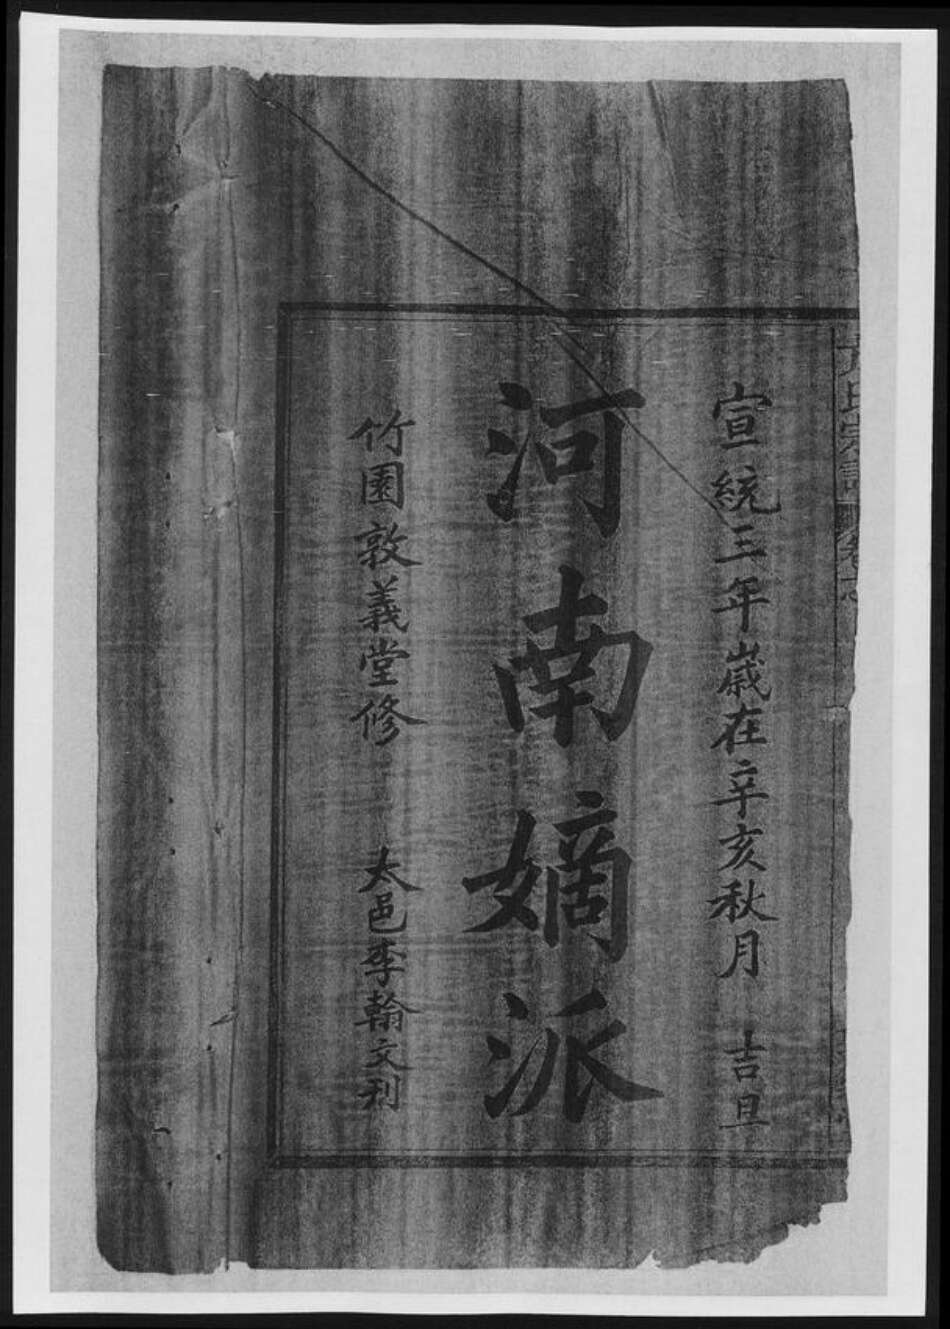 氏宗譜
宣統三年歲在辛亥秋月 吉旦
河南嫡派
竹園敦義堂修 太邑李翰文刊